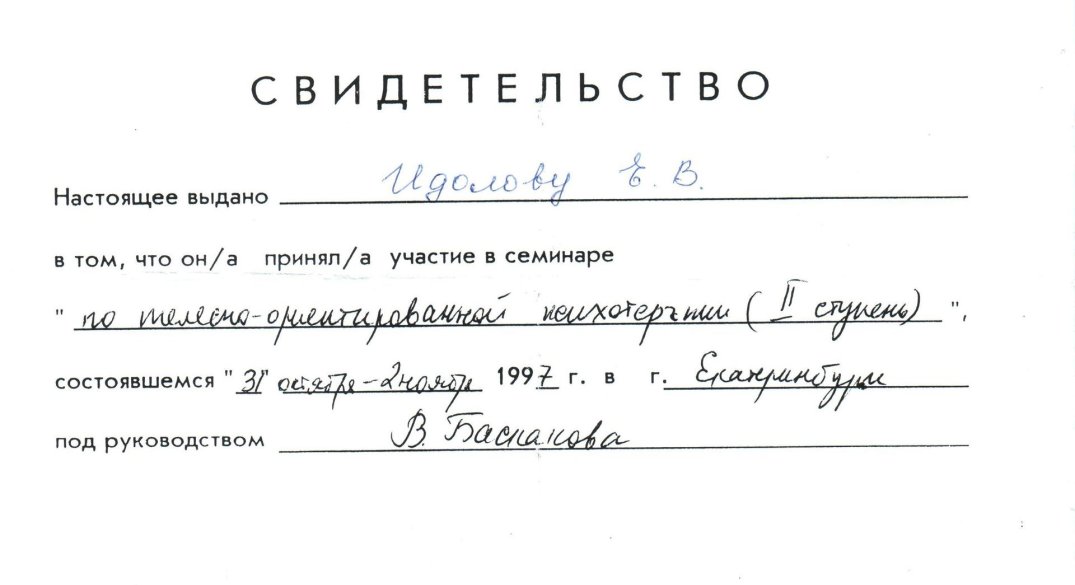 СВИДЕТЕЛЬСТВО
Настоящее выдано Идолову Е. В.
в том, что он/а принял/а участие в семинаре
" по телесно-ориентированной психотерапии ( II ступень) ",
состоявшемся " 31 октября - 2 ноября 1997 г. в г. Екатеринбурге
под руководством В. Баскакова